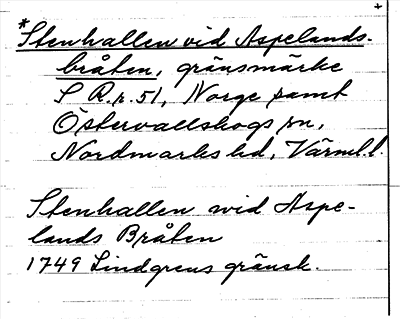 *Stenhallen vid Aspelands-
bråten, gränsmärke
S R.r. 51, Norge samt
Östervallskogs sn,
Nordmarks hd, Värml. l.
Stenhallen wid Aspe-
lands Bråten
1749 Lindgrens gränsk.